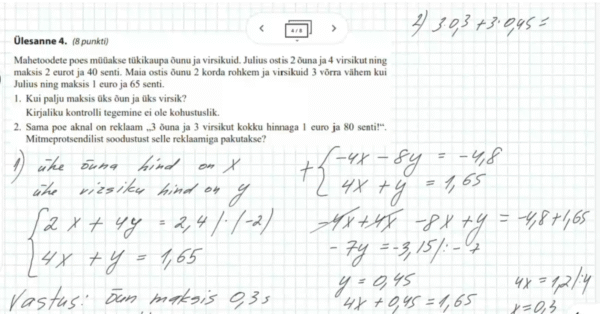 4 / 8
Ülesanne 4. (8 punkti)
Mahetoodete poes müüakse tükikaupa õunu ja virsikuid. Julius ostis 2 õuna ja 4 virsikut ning
maksis 2 eurot ja 40 senti. Maia ostis õunu 2 korda rohkem ja virsikuid 3 võrra vähem kui
Julius ning maksis 1 euro ja 65 senti.
1. Kui palju maksis üks õun ja üks virsik?
Kirjaliku kontrolli tegemine ei ole kohustuslik.
2. Sama poe aknal on reklaam „3 õuna ja 3 virsikut kokku hinnaga 1 euro ja 80 senti!“.
Mitmeprotsendilist soodustust selle reklaamiga pakutakse?
1) ühe õuna hind on x
ühe virsiku hind on y
2x + 4y = 2,4 | · (-2)
4x + y = 1,65
Vastus: õun maksis 0,3 s
2) 3·0,3 + 3·0,45 =
+ -4x - 8y = -4,8
4x + y = 1,65
-4x + 4x - 8y + y = -4,8 + 1,65
-7y = -3,15 | : -7
y = 0,45
4x + 0,45 = 1,65
4x = 1,2 | : 4
x = 0,3